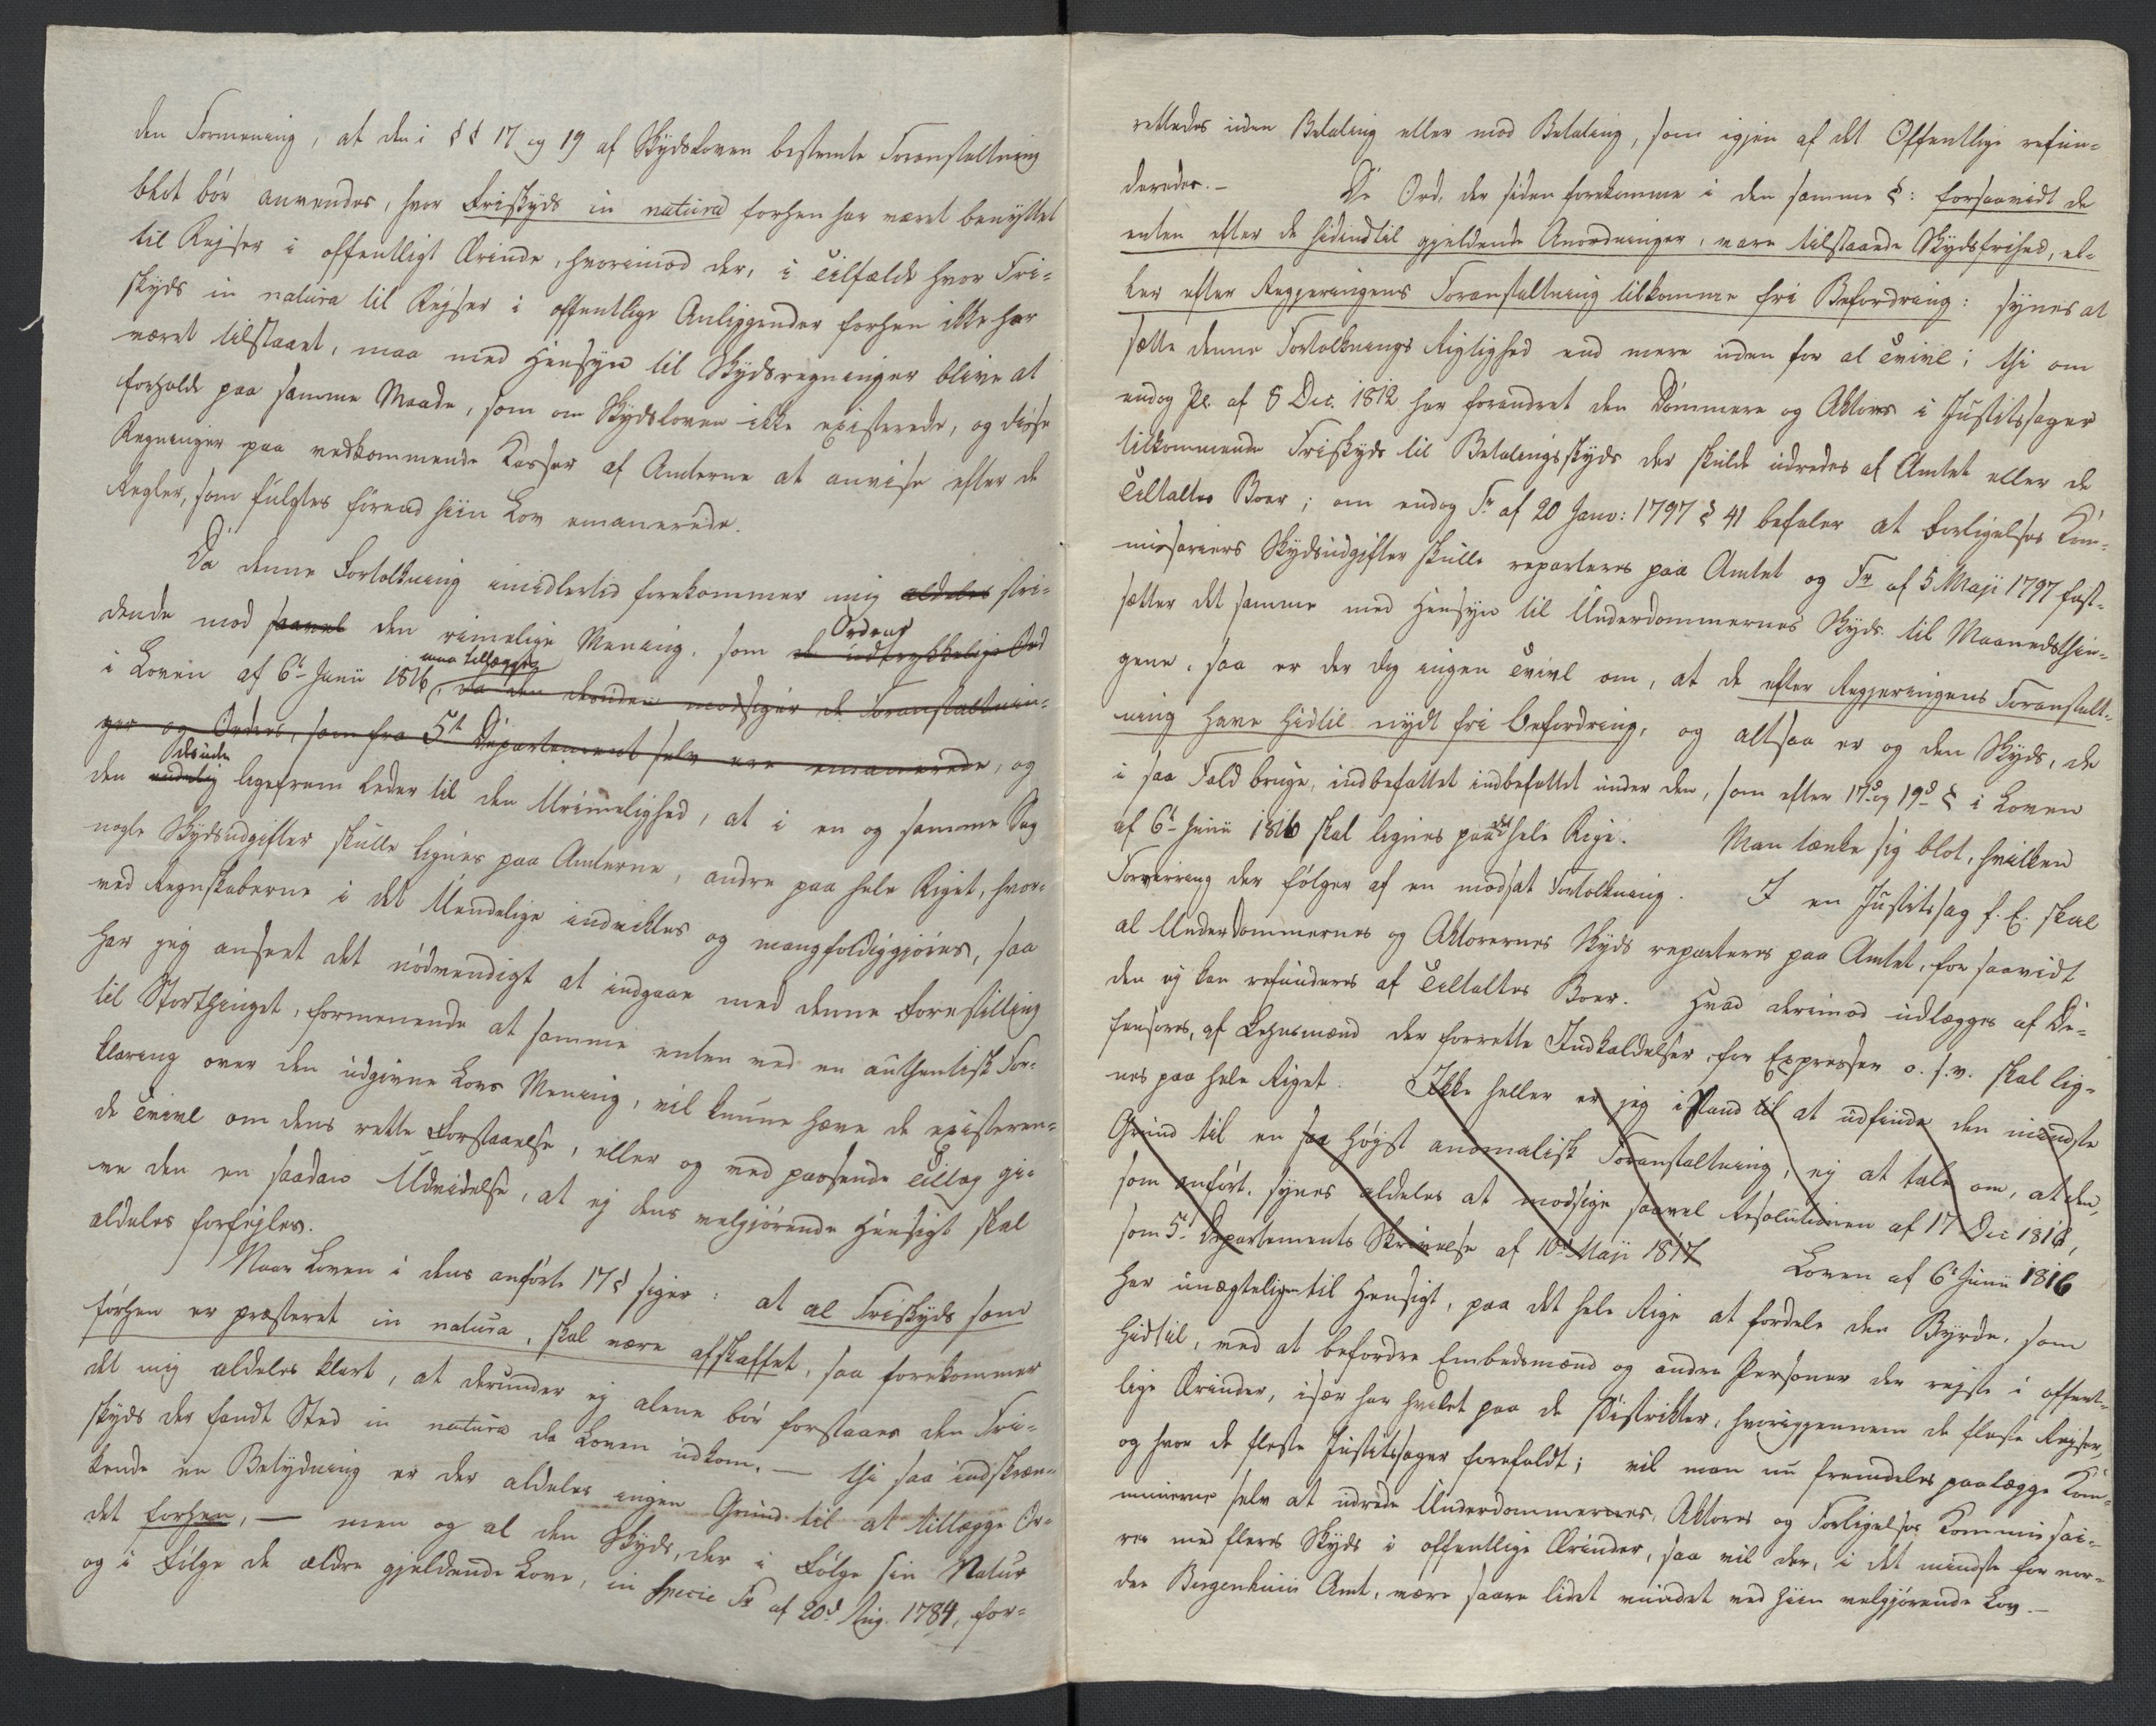 den Formening, at den i §§ 17 og 19 af Skydsloven bestemte Foranstaltning
blot bör anvendes, hvor Friskyds in natura forhen har været benyttet
til Rejser i offentligt Ærinde, hvorimod der, i Tilfælde hvor Fri-
skyds in natura til Rejser i offentlige Anliggender forhen ikke har
været tilstaaet, maa med Hensyn til Skydsregninger blive at
forholde paa samme Maade, som om Skydsloven ikke existerede, og disse
Regninger paa vedkommende Kasser af Amterne at anvise efter de
Regler, som fulgtes förend hiin Lov emanerede.
Da denne Fortolkning imidlertid forekommer mig aldeles stri-
dende mod saavel den rimelige Mening, som de udtrykkelige Ord
Ordens
i Loven af 6te Junii 1816, da den desuden modsiger de Foranstaltnin-
maa tillægges
ger og Ordres, som fra 5te Departement selv ere emanerede, og
den endelig ligefrem leder til den Urimelighed, at i en og samme Sag
desuden
nogle Skydsudgifter skulle lignes paa Amterne, andre paa hele Riget, hvor-
ved Regnskaberne i det Uendelige indvikles og mangfoldiggjöres, saa
har jeg anseet det nödvendigt at indgaae med denne Forestilling
til Storthinget, formenende at samme enten ved en authentisk For-
klaring over den udgivne Lovs Mening, vil kunne hæve de existeren-
de Tvivl om dens rette Forstaaelse, eller og ved passende Tillæg gi-
ve den en saadan Udvidelse, at ej dens velgjörende Hensigt skal
aldeles forfejles.
Naar Loven i dens anförte 17 § siger: at al Friskyds som
forhen er præsteret in natura, skal være afskaffet, saa forekommer
det mig aldeles klart, at derunder ej alene bör forstaaes den Fri-
skyds der fandt Sted in natura da Loven udkom, — thi saa indskræn-
kende en Betydning er der aldeles ingen Grund til at tillægge Or-
det forhen, — men og al den Skyds, der i Fölge sin Natur
og i Fölge de ældre gjeldende Love, in specie Fr af 20d Aug. 1784, for-
rettedes uden Betaling eller mod Betaling, som igjen af det Offentlige refun-
deredes. — De Ord, der siden forekomme i den samme §: forsaavidt de
enten efter de hidindtil gjeldende Anordninger, vare tilstaaede Skydsfrihed, el-
ler efter Regjeringens Foranstaltning tilkomme fri Befordring: synes at
sætte denne Fortolknings Rigtighed end mere uden for al Tvivl; thi om
endog Pl. af 8 Dec. 1812 har forandret den Dömmere og Aktorer i Justitssager
tilkommende Friskyds til Betalingsskyds der skulde udredes af Amtet eller de
Tiltaltes Boer; om endog Fr af 20 Janv: 1797 § 41 befaler at Forligelses Kom-
missariers Skydsudgifter skulle reparteres paa Amtet og Fr af 5 Maji 1797 fast-
sætter det samme med Hensyn til Underdommernes Skyds til Maanedsthin-
gene, saa er der dog ingen Tvivl om, at de efter Regjeringens Foranstalt-
ning have hidtil nydt fri Befordring, og altsaa er og den Skyds, de
i saa Fald bruge, indbefattet indbefattet under den, som efter 17d og 19d § i Loven
af 6te Junii 1816 skal lignes paa det hele Rige. Man tænke sig blot, hvilken
Forvirring der fölger af en modsat Fortolkning. I en Justitssag f. E. skal
al Underdommernes og Aktorernes Skyds reparteres paa Amtet, for saavidt
den ej kan refunderes af Tiltaltes Boer. Hvad derimod udlægges af De-
fensores, af Lehnsmænd der forrette Indkaldelser, for Expresser o. s. v. skal lig-
nes paa hele Riget. Ikke heller er jeg istand til at udfinde den mindste
Grund til en saa höjst anomalisk Foranstaltning, ej at tale om, at den,
som anfört, synes aldeles at modsige saavel Resolutionen af 17 Dec 1816,
som 5te Departements Skrivelse af 10d Maji 1817 Loven af 6te Junii 1816
har unægteligen til Hensigt, paa det hele Rige at fordele den Byrde, som
hidtil, med at befordre Embedsmænd og andre Personer der rejste i offent-
lige Ærinder, især har hvilet paa de Distrikter, hvorigjennem de fleste Rejser,
og hvor de fleste Justitssager forefaldt; vil man nu fremdeles paalægge Kom-
munerne selv at udrede Underdommernes, Aktores og Forligelses Kommissai-
rer med fleres Skyds i offentlige Ærinder, saa vil der, i det mindste for nor-
dre Bergenhuus Amt, være saare lidet vundet ved hiin velgjörende Lov. —